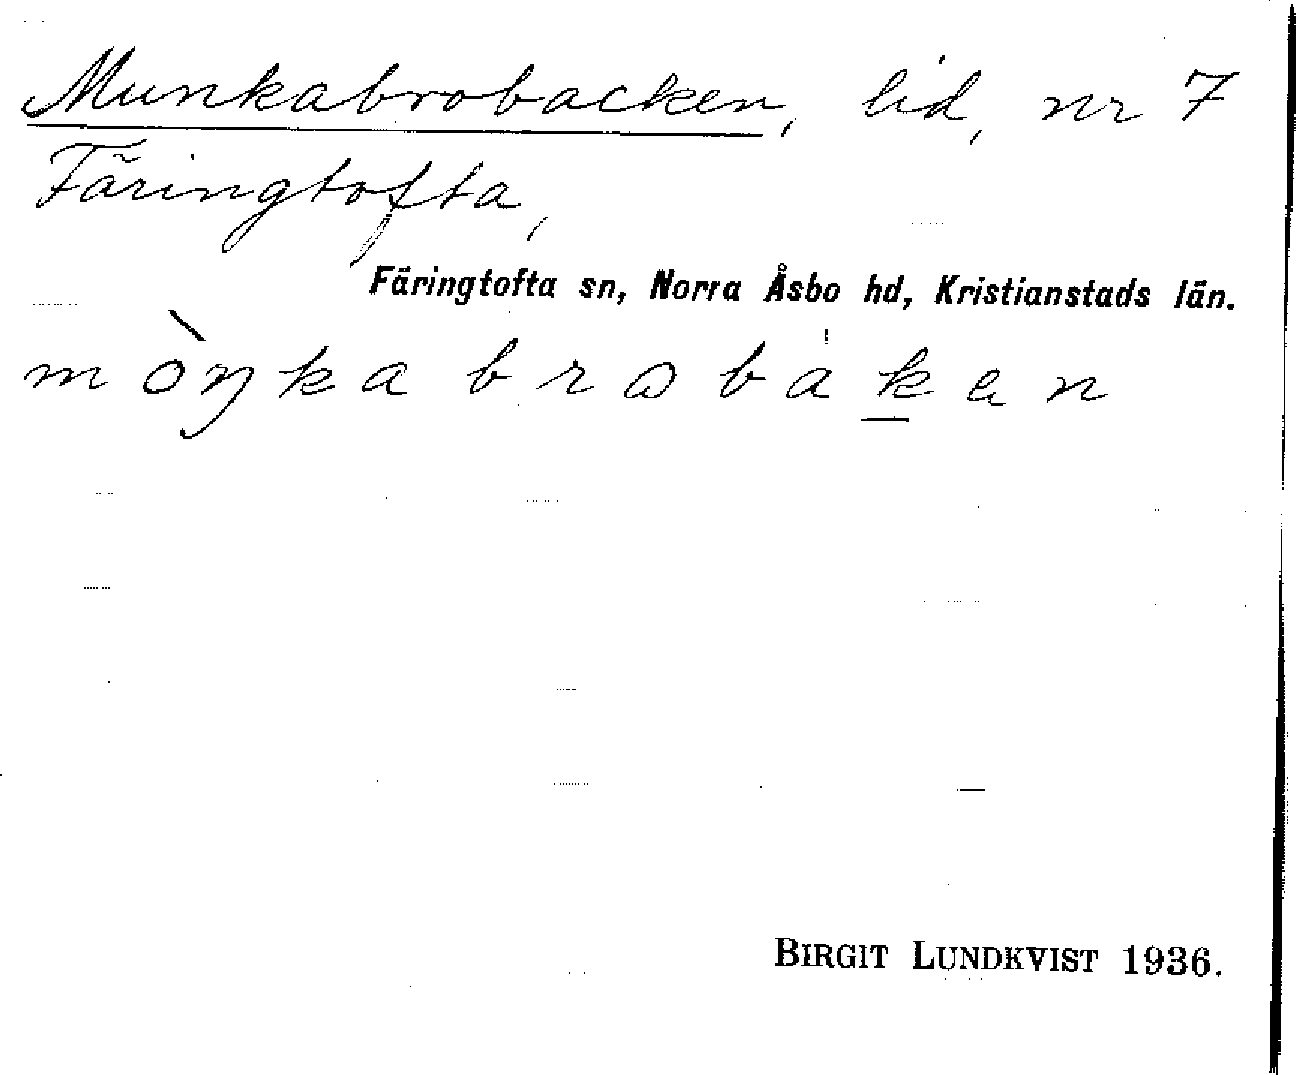 Munkabrobacken, lid, nr 7
Färingtofta,
Färingtofta sn, Norra Åsbo hd, Kristianstads län.
mòŋkabrobak̲en
BIRGIT LUNDKVIST 1936.